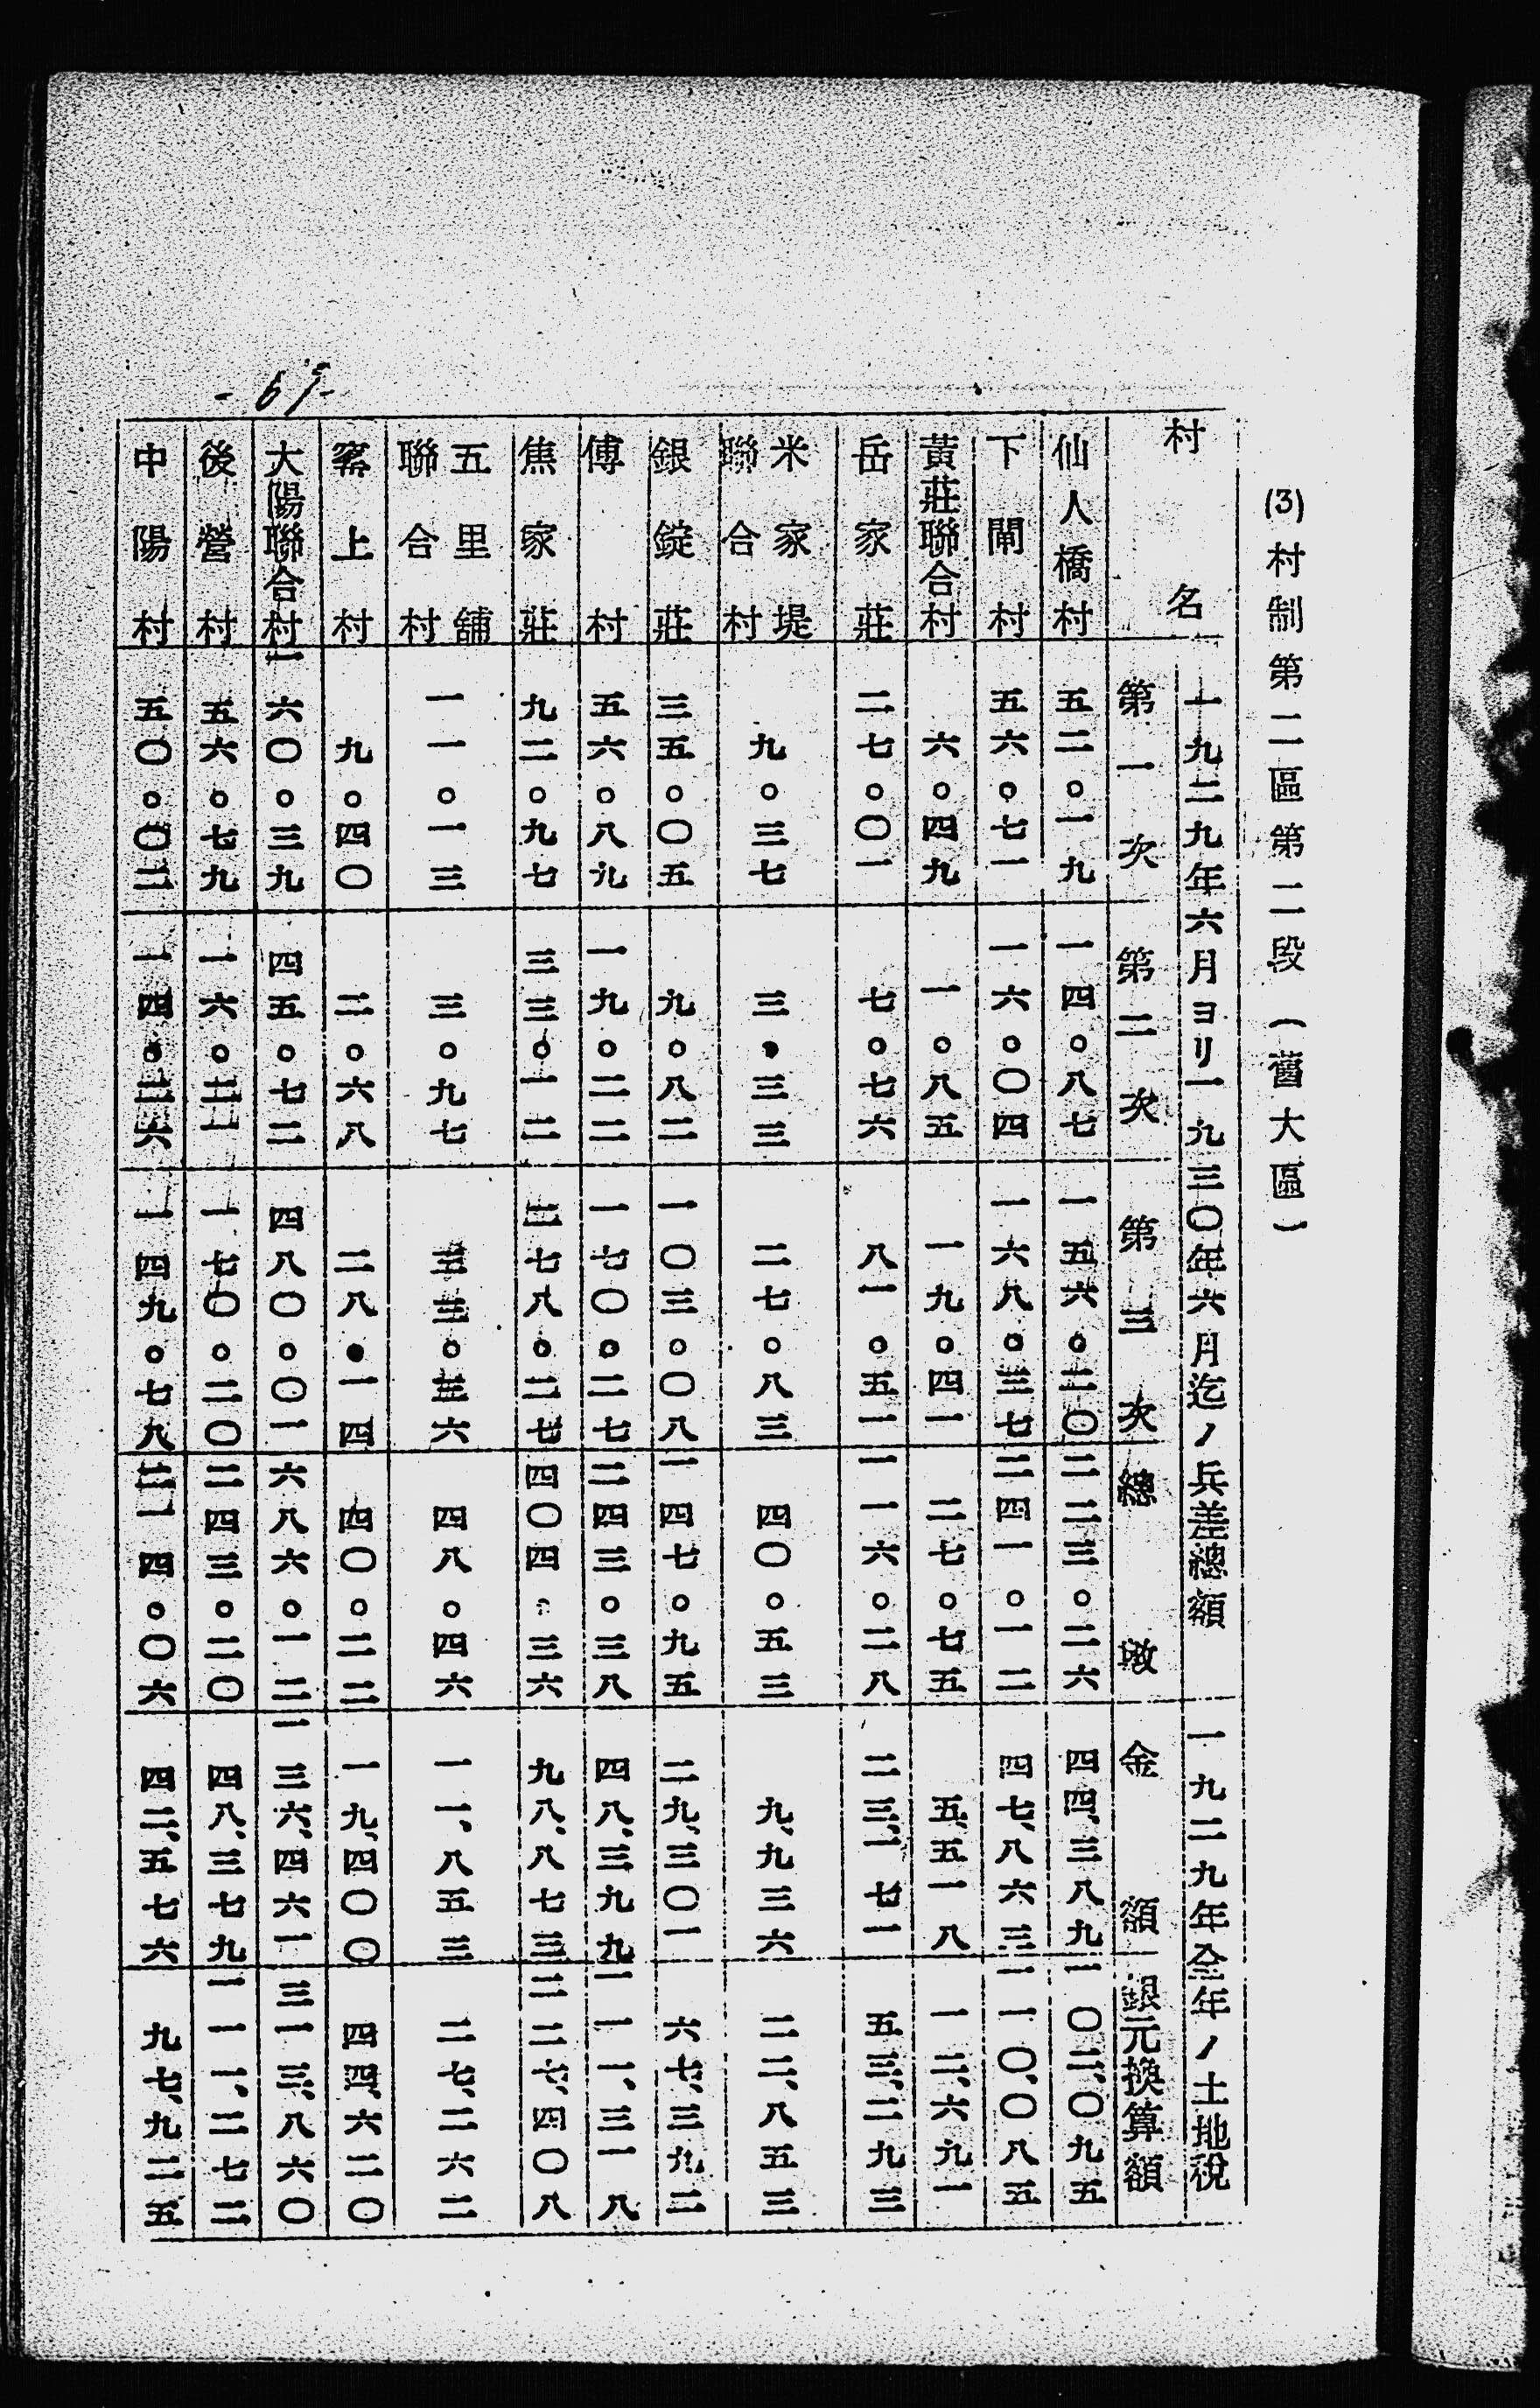 (3)村制第二區第二段(舊大區)
村名 一九二九年六月ヨリ一九三〇年六月迄ノ兵差總額 一九二九年全年ノ土地稅
第一次 第二次 第三次 總墩 金額 銀元換算額
仙人橋村 五二。一九 一四。八七 一五六。二〇 二二三。二六 四四、三八九 一〇二、〇九五
下閘村 五六。七一 一六。〇四 一六八。三七 二四一。一二 四七、八六三 一一〇、〇八五
黃莊聯合村 六。四九 一。八五 一九。四一 二七。七五 五、五一八 一二、六九一
岳家莊 二七。〇一 七。七六 八一。五一 一一六。二八 二三、一七一 五三、二九三
米家堤聯合村 九。三七 三。三三 二七。八三 四〇。五三 九、九三六 二二、八五三
銀錠莊 三五。〇五 九。八二 一〇三。〇八 一四七。九五 二九、三〇一 六七、三九二
傅村 五六。八九 一九。二二 一七〇。二七 二四三。三八 四八、三九九 一一一、三一八
焦家莊 九二。九七 三三。一二 二七八。二七 四〇四。三六 九八、八七三 二二七、四〇八
五里舖聯合村 一一。一三 三。九七 三三。三六 四八。四六 一一、八五三 二七、二六二
窰上村 九。四〇 二。六八 二八。一四 四〇。二二 一九、四〇〇 四四、六二〇
大陽聯合村 一六〇。三九 四五。七二 四八〇。〇一 六八六。一二 一三六、四六一 三一三、八六〇
後營村 五六。七九 一六。二一 一七〇。二〇 二四三。二〇 四八、三七九 一一一、二七二
中陽村 五〇。〇二 一四。二六 一四九。七八 二一四。〇六 四二、五七六 九七、九二五